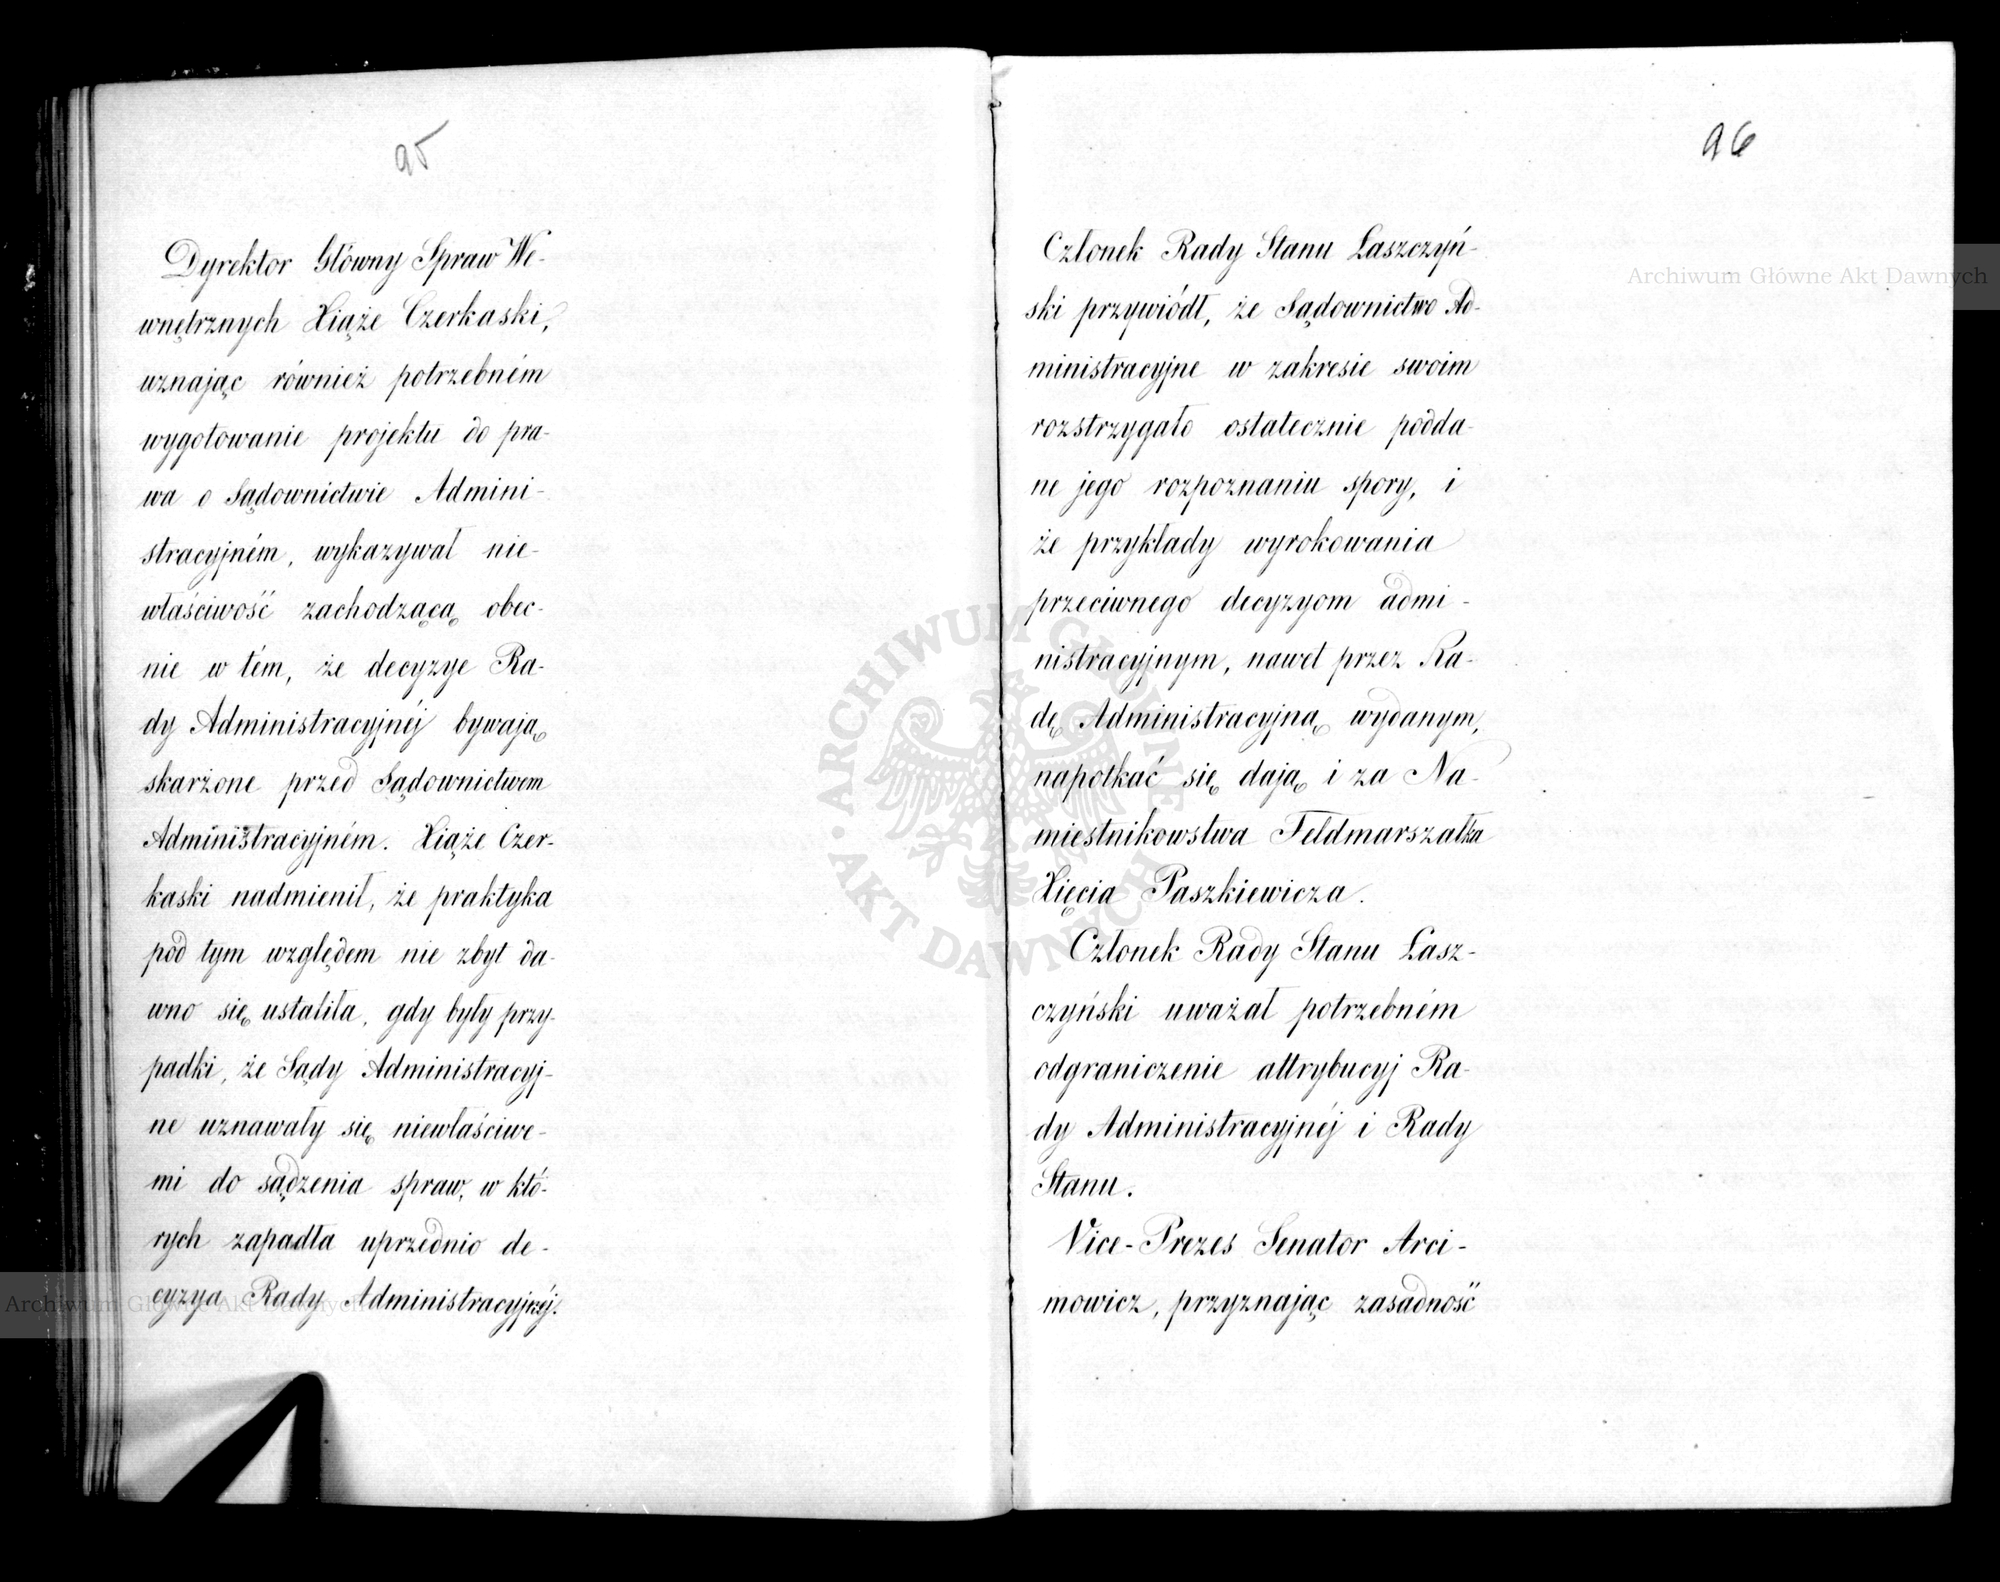 95
Dyrektor Główny Spraw We-
wnętrznych Xiąże Czerkaski,
uznając również potrzebném
wygotowanie projektu do pra-
wa o Sądownictwie Admini-
stracyjném, wykazywał nie-
właściwość zachodzącą obec-
nie w tém, że decyzye Ra-
dy Administracyjnéj bywają
skarżone przed Sądownictwem
Administracyjném. Xiąże Czer-
kaski nadmienił, że praktyka
pod tym względem nie zbyt da-
wno się ustaliła, gdy były przy-
padki, że Sądy Administracyj-
ne uznawały się niewłaściwe-
mi do sądzenia spraw, w któ-
rych zapadła uprzednio de-
cyzya Rady Administracyjnéj.
96
Członek Rady Stanu Łaszczyń-
ski przywiódł, że Sądownictwo Ad-
ministracyjne w zakresie swoim
rozstrzygało ostatecznie podda-
ne jego rozpoznaniu spory, i
że przykłady wyrokowania
przeciwnego decyzyom admi-
nistracyjnym, nawet przez Ra-
dę Administracyjną wydanym,
napotkać się dają i za Na-
miestnikowstwa Feldmarszałka
Xięcia Paszkiewicza.
Członek Rady Stanu Łasz-
czyński uważał potrzebném
odgraniczenie attrybucyj Ra-
dy Administracyjnéj i Rady
Stanu.
Vice-Prezes Senator Arci-
mowicz, przyznając zasadność
Archiwum Główne Akt Dawnych
Archiwum Główne Akt Dawnych
ARCHIWUM GŁÓWNE AKT DAWNYCH